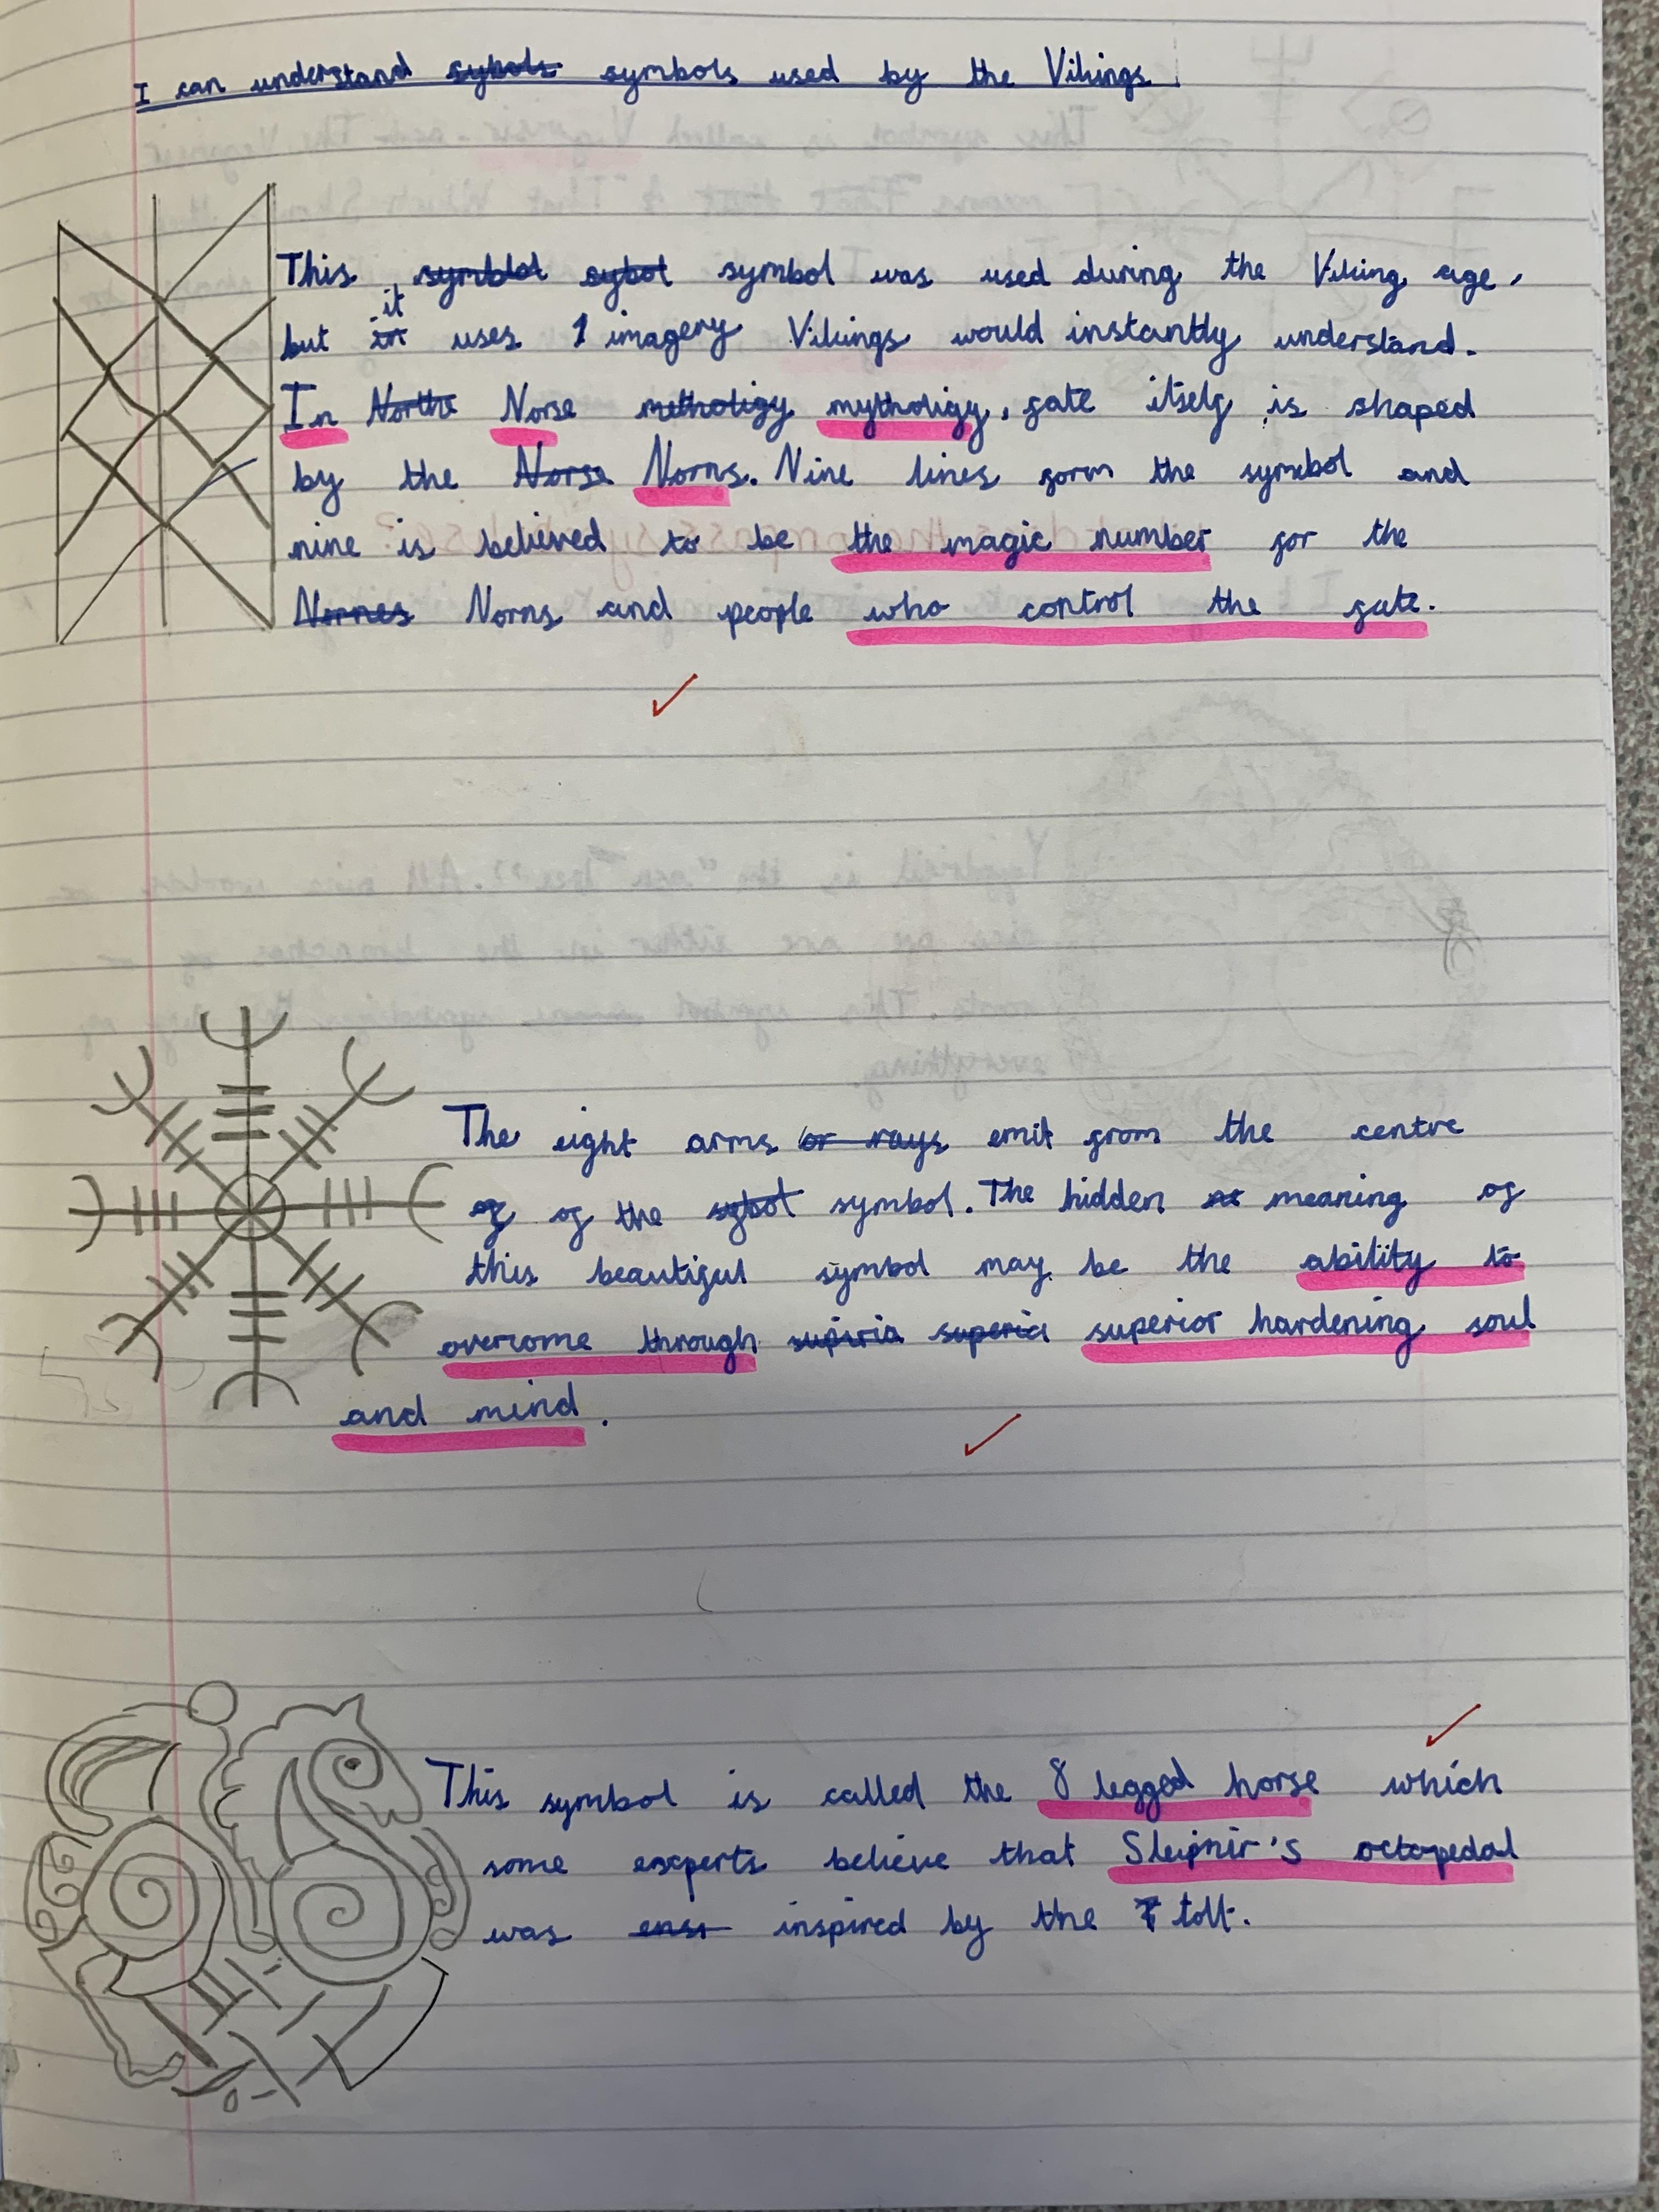 I can understand sybols symbols used by the Vikings
This symblol sybol symbol was used during the Viking age,
it
but in uses 1 imagery Vikings would instantly understand.
In Northe Norse metholigy mytholigy, gate itself is shaped
by the Norse Norns. Nine lines form the symbol and
nine is believed to be the magic number for the
Nornes Norns and people who control the gate.
The eight arms or rays emit from the centre
of of the sybol symbol. The hidden meaning of
this beautiful symbol may be the ability to
overcome through supiria superici superior hardening soul
and mind.
This symbol is called the 8 legged horse which
some experts believe that Sleipnir's octopedal
was inspired by the tolt.